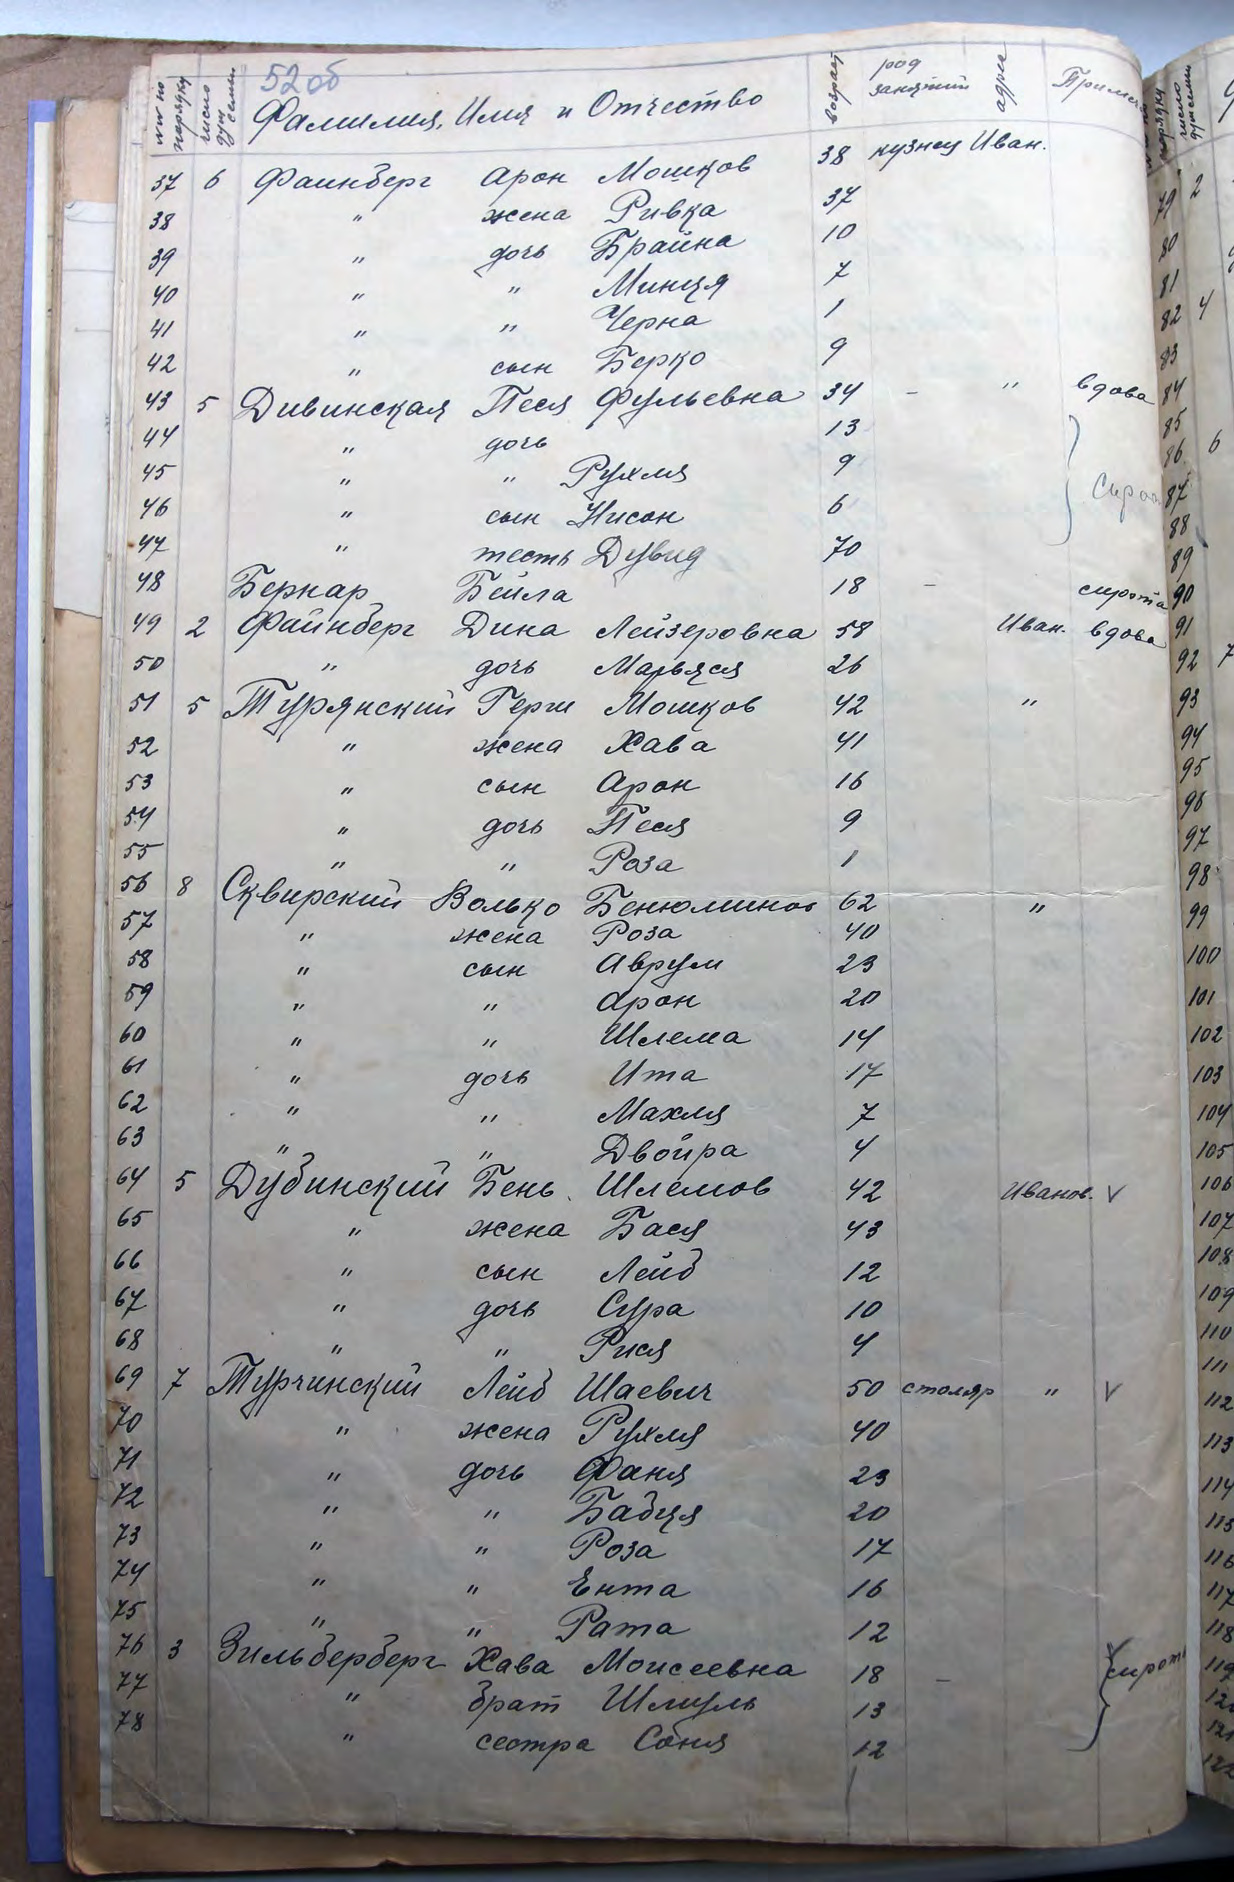 52об
№№ по порядку число душ семьи Фамилия, Имя и Отчество возраст род занятий адрес Примеч
37 6 Файнберг Арон Мошков 38 кузнец Иван.
38 " жена Ривка 37
39 " дочь Брайна 10
40 " " Минця 7
41 " " Черна 1
42 " сын Берко 9
43 5 Дивинская Песя Фульевна 34 - " вдова
44 " дочь 13
45 " " Рухля 9
46 " сын Нисон 6 Сирот
47 " тесть Дувид 70
48 Бернар Бейла 18 - сирота
49 2 Файнберг Дина Лейзеровна 58 Иван. вдова
50 " дочь Марьяся 26
51 5 Турянский Герш Мошков 42 "
52 " жена Хава 41
53 " сын Арон 16
54 " дочь Песя 9
55 " " Роза 1
56 8 Сквирский Волько Бенюминов 62 "
57 " жена Роза 40
58 " сын Аврум 23
59 " " Арон 20
60 " " Шлема 14
61 " дочь Ита 17
62 " " Махля 7
63 " " Двойра 4
64 5 Дубинский Бень Шлемов 42 Иванов. V
65 " жена Бася 43
66 " сын Лейб 12
67 " дочь Сура 10
68 " " Рися 4
69 7 Турчинский Лейб Шаевич 50 столяр " V
70 " жена Рухля 40
71 " дочь Фаня 23
72 " " Бабця 20
73 " " Роза 17
74 " " Ента 16
75 " " Рата 12
76 3 Зильберберг Хава Моисеевна 18 - сироты
77 " брат Шмуль 13
78 " сестра Соня 12
№№ по порядку число душ семьи
79 2
80
81
82 4
83
84
85
86 6
87
88
89
90
91
92 7
93
94
95
96
97
98
99
100
101
102
103
104
105
106
107
108
109
110
111
112
113
114
115
116
117
118
119
120
121
122